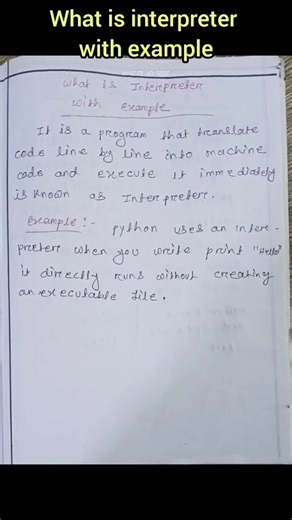 What is interpreter
with example
What is Interpreter
with Example
It is a program that translate
code line by line into machine
code and execute it immediately
is known as Interpreter.
Example :- python uses an inter-
preter when you write print "Hello"
it directly runs without creating
an executable file.